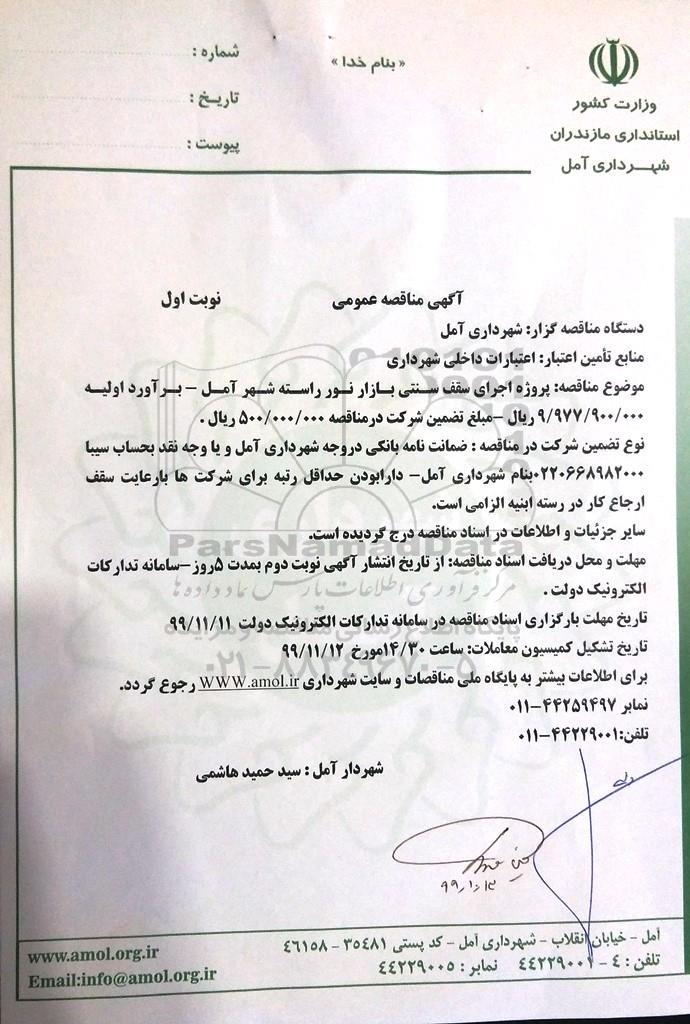 « بنام خدا »
شماره :
تاریـخ :
پیوست :
وزارت کشور
استانداری مازندران
شهــرداری آمل
آگهی مناقصه عمومی نوبت اول
دستگاه مناقصه گزار: شهرداری آمل
منابع تأمین اعتبار: اعتبارات داخلی شهرداری
موضوع مناقصه: پروژه اجرای سقف سنتی بازار نور راسته شهر آمل – برآورد اولیه
۹/۹۷۷/۹۰۰/۰۰۰ ریال –مبلغ تضمین شرکت درمناقصه ۵۰۰/۰۰۰/۰۰۰ ریال .
نوع تضمین شرکت در مناقصه : ضمانت نامه بانکی دروجه شهرداری آمل و یا وجه نقد بحساب سیبا
۰۲۲۰۶۶۸۹۸۲۰۰۰بنام شهرداری آمل– دارابودن حداقل رتبه برای شرکت ها بارعایت سقف
ارجاع کار در رسته ابنیه الزامی است.
سایر جزئیات و اطلاعات در اسناد مناقصه درج گردیده است.
مهلت و محل دریافت اسناد مناقصه: از تاریخ انتشار آگهی نوبت دوم بمدت ۵روز–سامانه تدارکات
الکترونیک دولت .
تاریخ مهلت بارگزاری اسناد مناقصه در سامانه تدارکات الکترونیک دولت ۹۹/۱۱/۱۱
تاریخ تشکیل کمیسیون معاملات: ساعت ۱۴/۳۰مورخ ۹۹/۱۱/۱۲
برای اطلاعات بیشتر به پایگاه ملی مناقصات و سایت شهرداری WWW.amol.ir رجوع گردد.
نمابر ۴۴۲۵۹۴۹۷-۰۱۱
تلفن:۴۴۲۲۹۰۰۱-۰۱۱
شهردار آمل : سید حمید هاشمی
ParsNamadData
مرکز فرآوری اطلاعات پارس نماد داده ها
پایگاه اطلاع رسانی مناقصه و مزایده
۰۲۱-۸۸۳۴۹۶۷۰-۵
آمل - خیابان انقلاب - شهرداری آمل - کد پستی ۳۵۴۸۱ - ۴۶۱۵۸
تلفن : ۴ - ۴۴۲۲۹۰۰۱ نمابر : ۴۴۲۲۹۰۰۵
www.amol.org.ir
Email:info@amol.org.ir